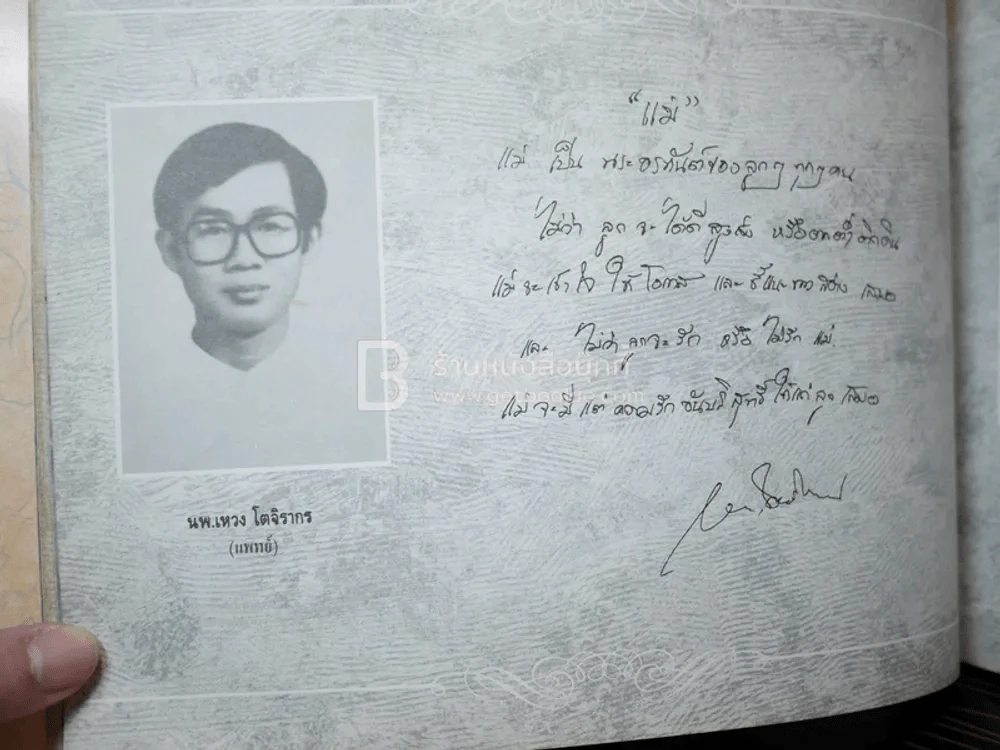 "แม่"
แม่ เป็น พระอรหันต์ของลูกๆ ทุกๆคน
ไม่ว่า ลูก จะ ได้ดี สูงส่ง หรือตกต่ำ
แม่ จะ เข้าใจ ให้ โอกาส และ ชี้แนะ ทางสว่าง เสมอ
และ ไม่ว่า ลูก จะ รัก หรือ ไม่รัก แม่
แม่ จะมี แต่ ความรัก อันบริสุทธิ์ ให้แก่ ลูก เสมอ
ร้านหนังสือบุ๊คคาเฟ่
นพ.เหวง โตจิราการ
(แพทย์)